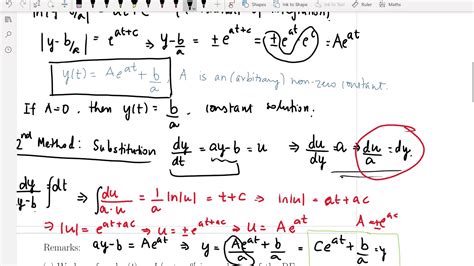 Ink to Shape Ink to Math
|y - b/a| = e^{at+c} ⇒ y - b/a = ± e^{at+c} = ± e^{at} e^{c} = A e^{at}
y(t) = A e^{at} + b/a , A is an (arbitrary) non-zero constant.
If A=0, then y(t) = b/a, constant solution.
2nd Method: Substitution dy/dt = ay-b = u ⇒ du/dy = a ⇒ du/a = dy.
dy/y-b ∫dt ⇒ ∫ du/a·u = 1/a ln|u| = t+c ⇒ ln|u| = at+ac
⇒ |u| = e^{at+ac} ⇒ u = ± e^{at+ac} ⇒ u = A e^{at} A = ± e^{ac}
Remarks: ay-b = A e^{at} ⇒ y = A e^{at}/a + b/a = C e^{at} + b/a = y